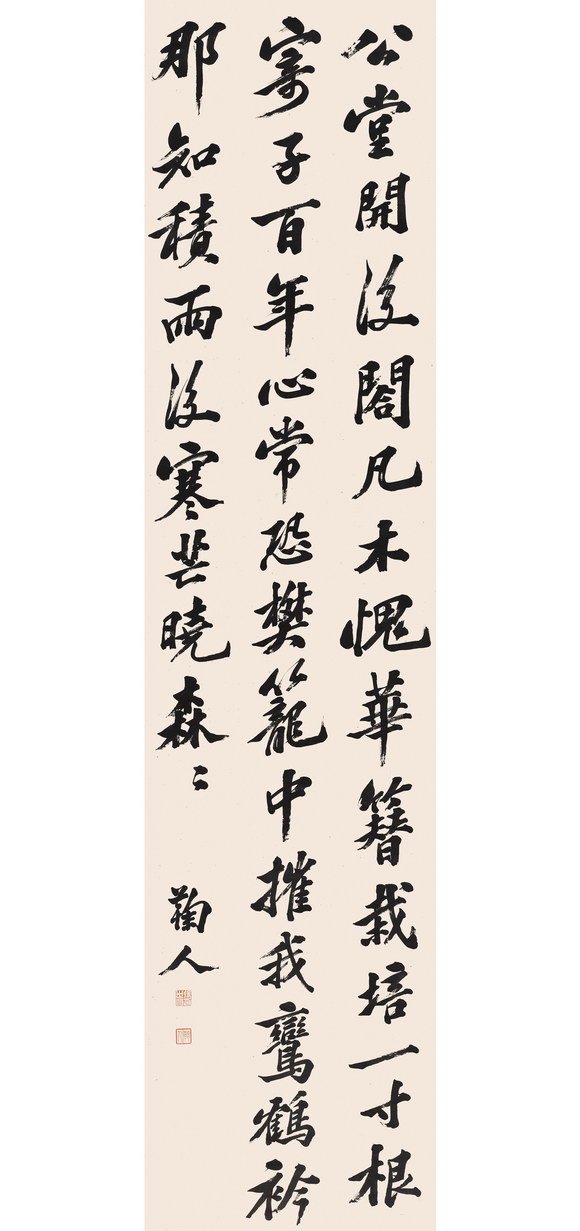 公堂開後閤凡木愧華簪栽培一寸根
寄子百年心常恐樊籠中摧我鸞鶴衿
那知積雨後寒芒曉森〻
鞠人